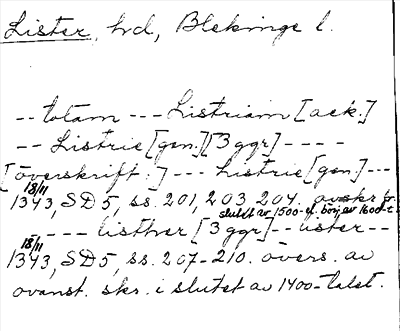 Lister, hd, Blekinge l.
-- totam --- Listriam [ack.]
-- Listrie [gen.] [3 ggr] ----
[överskrift:] --- Listrie [gen] ---
18/11
1343, SD5, ss. 201, 203 204. avskr fr.
slutet av 1500-t. börj av 1600-t.
--- listher [3 ggr] -- lister --
18/11
1343, SD5, ss. 207-210. övers. av
ovanst. skr. i slutet av 1400-talet.